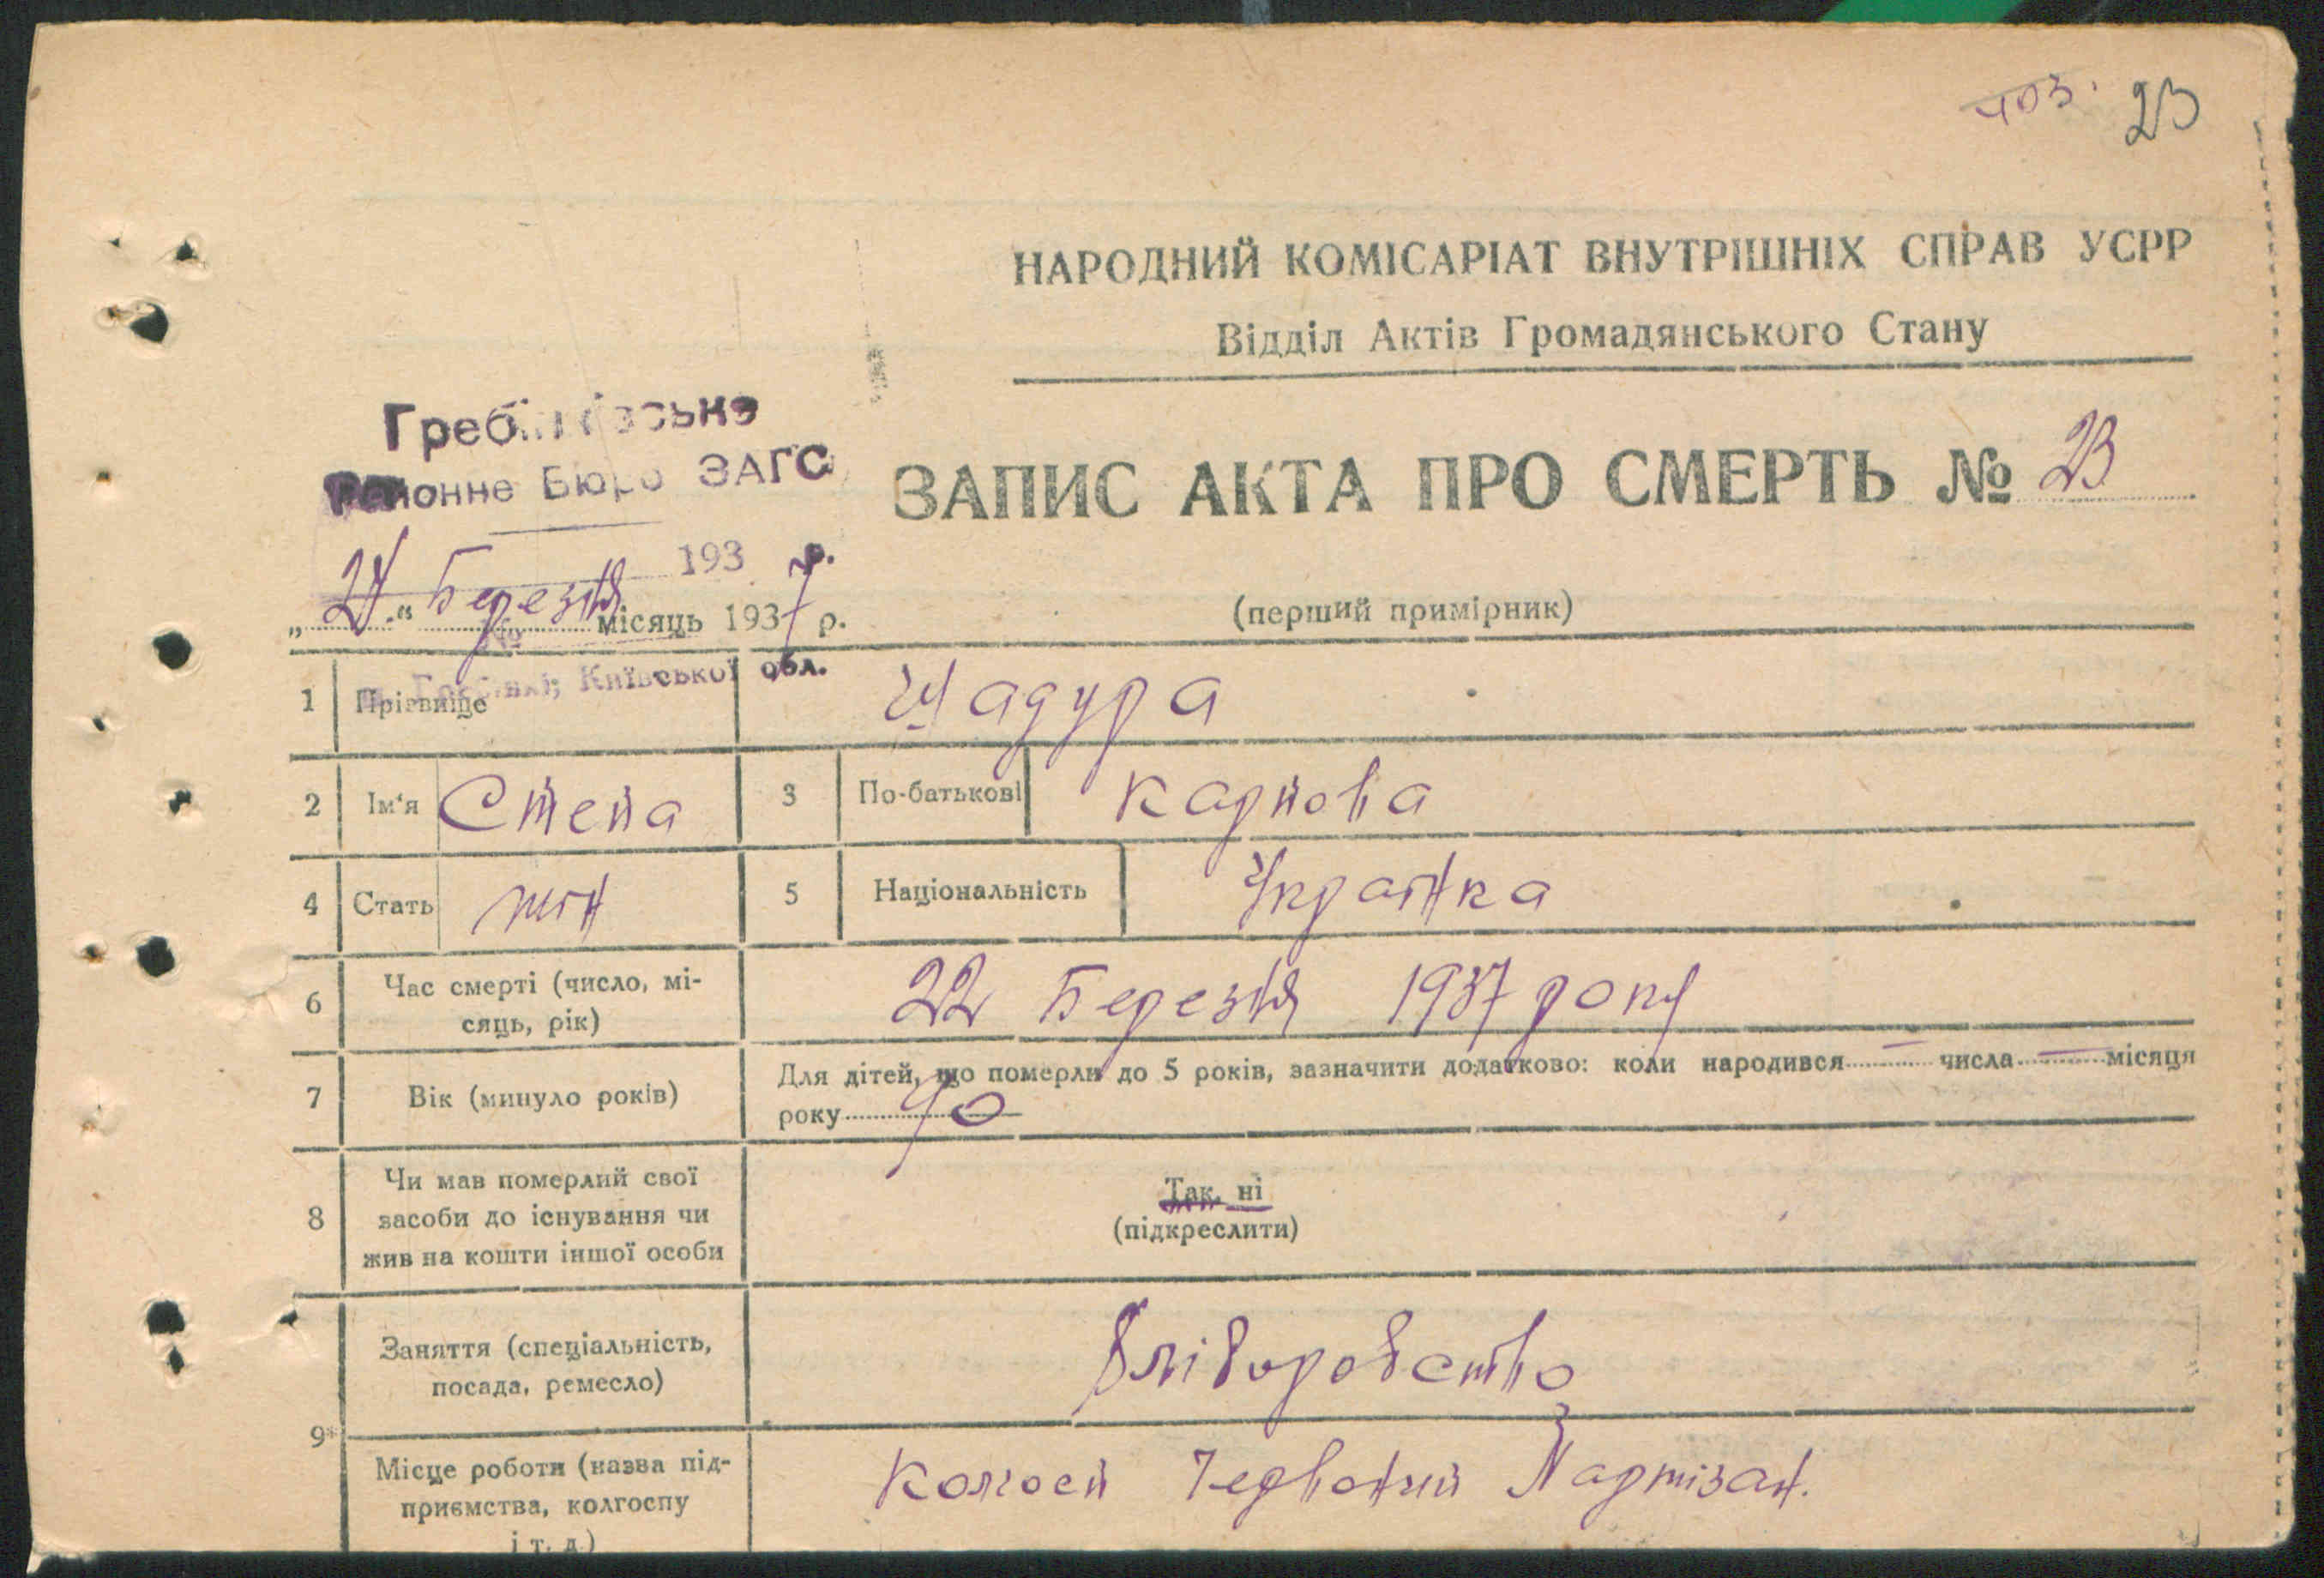 403. 23
НАРОДНИЙ КОМІСАРІАТ ВНУТРІШНІХ СПРАВ УСРР
Відділ Актів Громадянського Стану
Районне Бюро ЗАГС
193 р.
Київської обл.
ЗАПИС АКТА ПРО СМЕРТЬ № 23
(перший примірник)
„24“ Березня місяць 1937 р.
1 Прізвище Щадура
2 Ім'я Степа 3 По-батькові Карпова
4 Стать жін 5 Національність Украінка
6 Час смерті (число, мі-
сяць, рік) 22 Березня 1937 року
7 Вік (минуло років) Для дітей, що померли до 5 років, зазначити додатково: коли народився — числа — місяця
року 40
8 Чи мав померлий свої
засоби до існування чи
жив на кошти іншої особи
Так, ні
(підкреслити)
9 Заняття (спеціальність,
посада, ремесло)
Хліборобство
Місце роботи (назва під-
приємства, колгоспу
і т. д.)
Червоний Партізан.